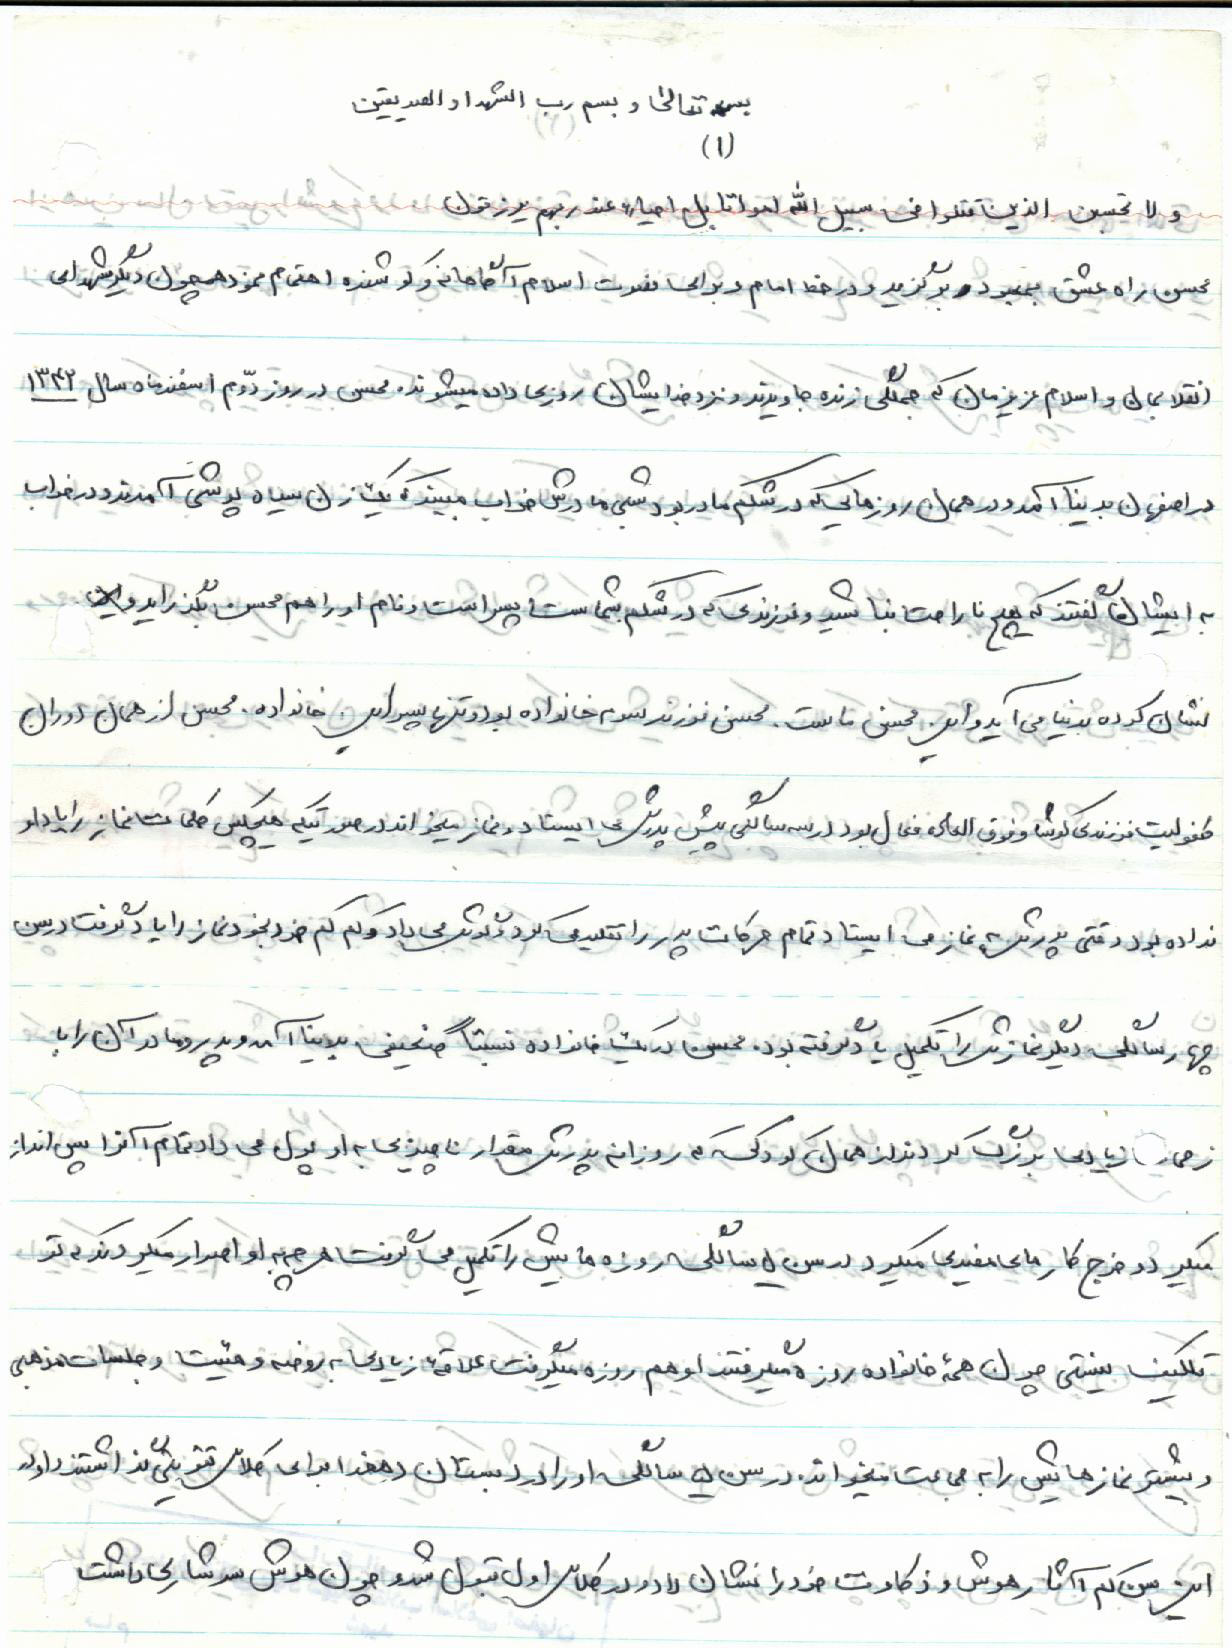 بسمه تعالی و بسم رب الشهدا و الصدیقین
(۱)
و لا تحسبن الذین قتلوا فی سبیل الله امواتا بل احیاء عند ربهم یرزقون
محسن راه عشق بمعبود برگزید و در خط امام و برای تقویت اسلام آگاهانه و کوشنده اهتمام نمود همچون دیگر شهدای
انقلابمان و اسلام عزیزمان که جملگی زنده جاویدند و نزد خدایشان روزی داده میشوند. محسن در روز دوّم اسفندماه سال ۱۳۴۲
در اصفهان بدنیا آمد و در همان روزهایی که در شکم مادر بود شبی مادرش خواب میبیند که یک زن سیاه پوشی آمدند و در خواب
به ایشان گفتند که هیچ ناراحت نباشید و فرزندی که در شکم شماست پسر است و نام او را هم محسن بگذارید و
نشان کرده بدنیا می آید و این محسن ماست. محسن فرزند سوم خانواده بود و تنها پسر این خانواده. محسن از همان دوران
طفولیت فرزندی کوشا و فوق العاده فعال بود در سه سالگی پیش پدرش می ایستاد و نماز میخواند در صورتیکه هیچکس کلمات نماز را یاد او
نداده بود وقتی پدرش به نماز می ایستاد تمام حرکات پدر را تقلید می کرد و گوش می داد و کم کم خود بخود نماز را یاد گرفت در سن
چهار سالگی دیگر نمازش را تکمیل یاد گرفته بود. محسن در یک خانواده نسبتاً ضعیفی بدنیا آمد و پدر و مادر آن را با
زحمات زیادی بزرگ کردند از همان کودکی که روزانه پدرش مقدار ناچیزی به او پول می داد تمام آنرا پس انداز
میکرد و خرج کارهای مفیدی میکرد در سن ۵ سالگی روزه هایش را تکمیل می گرفت هر چه به او اصرار میکردند که تو
تکلیف نیستی چون همهٔ خانواده روزه میگرفتند او هم روزه میگرفت علاقهٔ زیادی به روضه و هیئت و جلسات مذهبی
و بیشتر نمازهایش را به جماعت میخواند. در سن ۵ سالگی او را در دبستان دهخدا برای کلاس تقویتی گذاشتند و او در
این سن کم آثار هوش و ذکاوت خود را نشان داد و در کلاس اول قبول شد و چون هوش سرشاری داشت